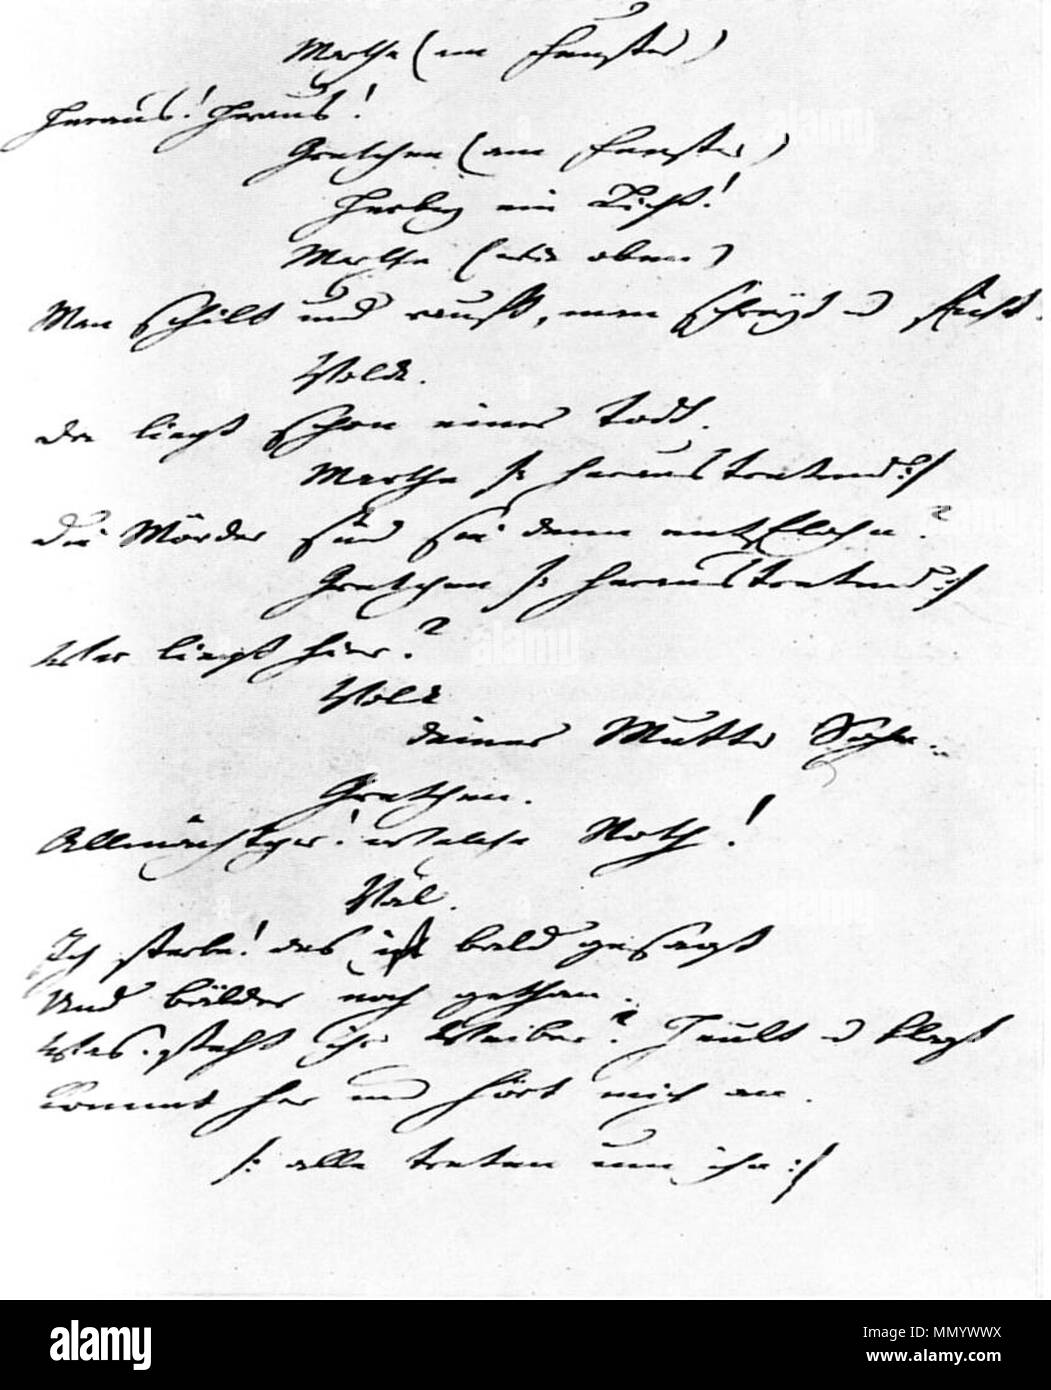 Marthe (am Fenster)
Heraus! Heraus!
Gretchen (am Fenster)
Herbey ein Licht!
Marthe (wie oben)
Man schilt und rauft, man schreyt u ficht.
Volck.
Da liegt schon einer todt.
Marthe /: heraustretend :/
Die Mörder sind sie denn entflohn?
Gretchen /: heraustretend :/
Wer liegt hier?
Volck
deiner Mutter Sohn.
Gretchen.
Allmächtger! welche Noth!
Val.
Ich sterbe! das ist bald gesagt
Und bälder noch gethan.
Was steht ihr Weiber? Heult u klagt
Kommt her und hört mich an.
/: alle treten um ihn :/
alamy
Image ID: MMYWWX
www.alamy.com